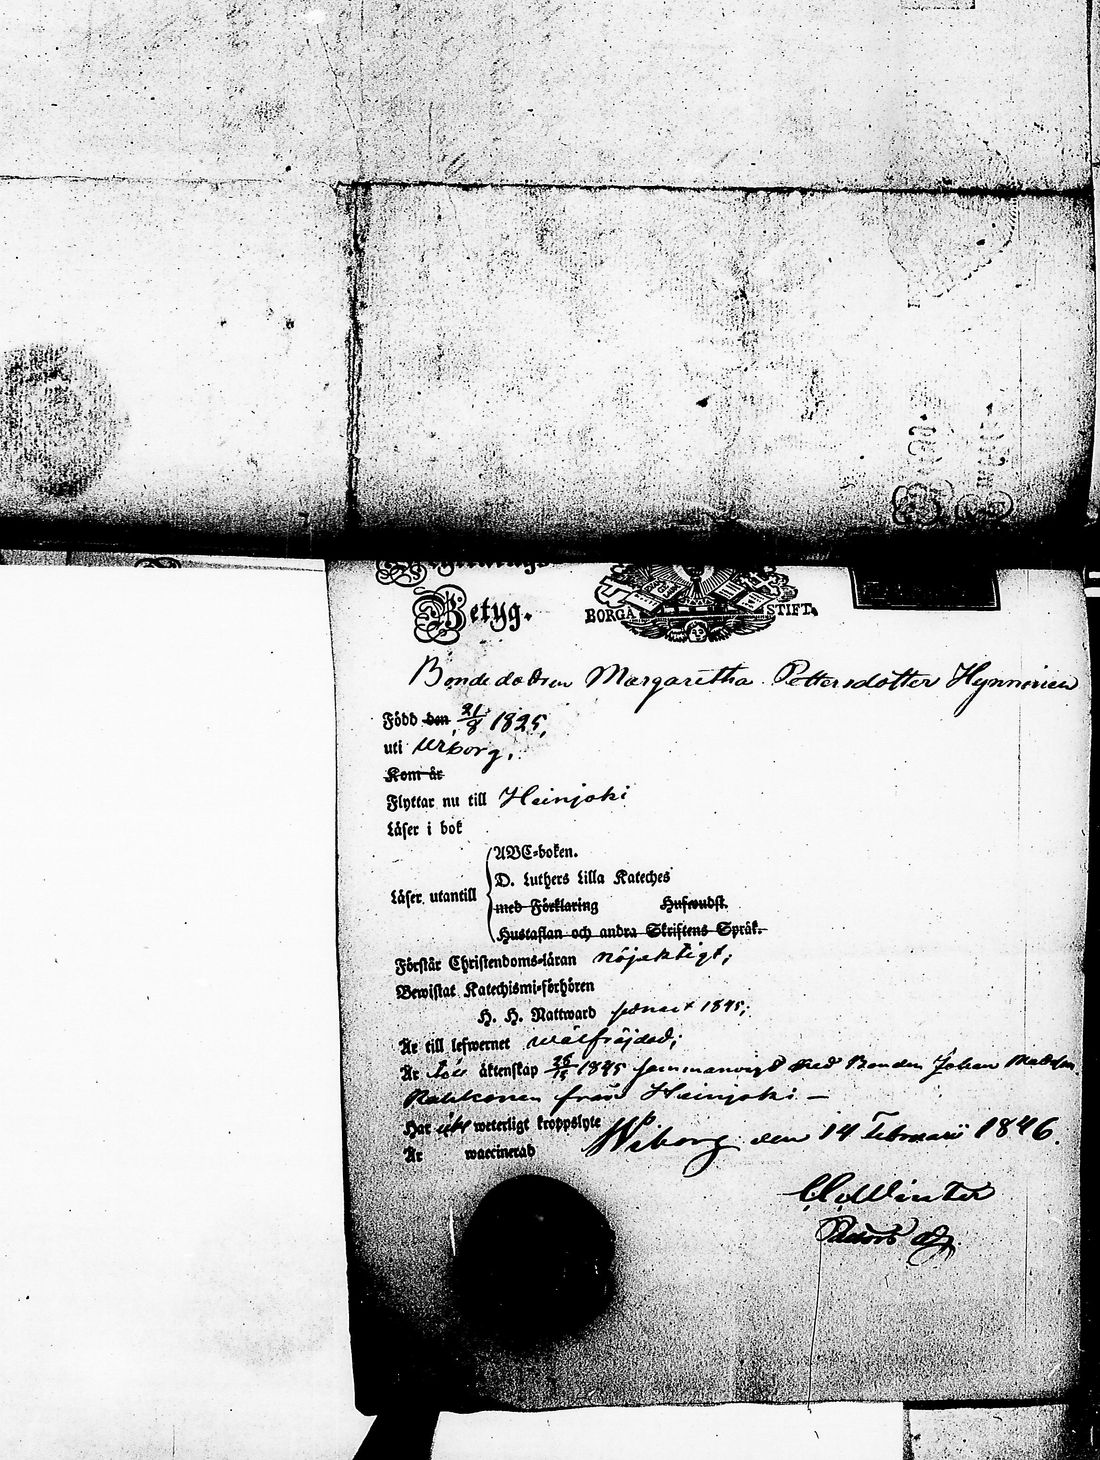 Betyg.
BORGÅ STIFT.
Bondedottren Margaretha Pettersdotter Hynninen
Född den 21/8 1825,
uti Wiborg,
Kom år
Flyttar nu till Heinjoki
Läser i bok
ABC-boken.
D. Luthers Lilla Kateches
Läser utantill
med Förklaring Husandst.
Hustaflan och andra Skriftens Språk.
Förstår Christendoms-läran nöjaktigt;
Bewistat Katechismi-förhören
H. H. Nattward senast 1845;
Är till lefwernet wälfräjdad;
Är äktenskap 1845 sammanvigd med Bonden Johan Mattsson
från Heinjoki —
Har icke weterligt kroppslyte
Är waccinerad
Wiborg den 14 Februarii 1846.
Winter
Pastor